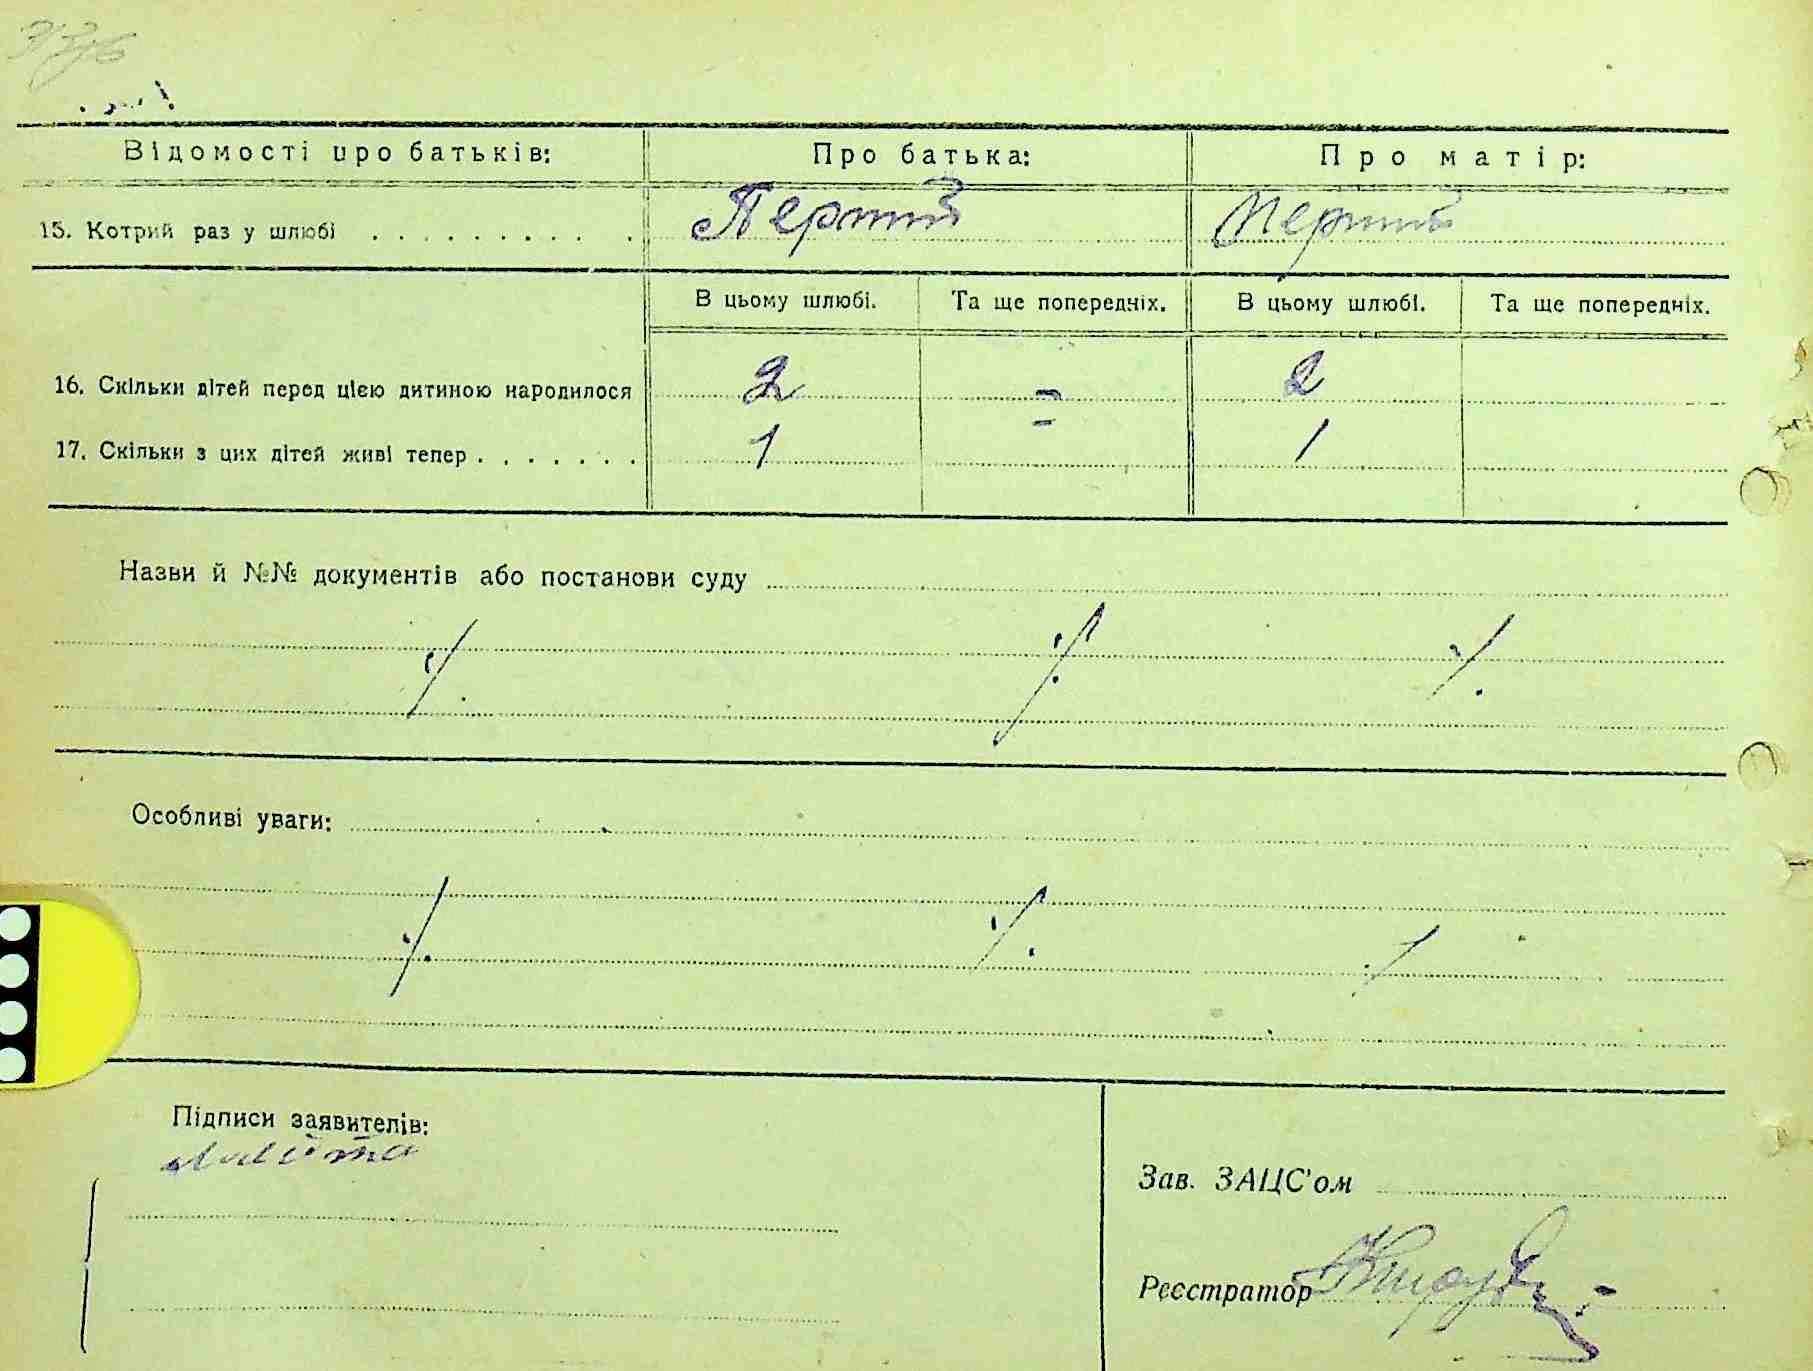 Відомості про батьків: Про батька: Про матір:
15. Котрий раз у шлюбі . . . . . . . . . . Перший Перший
В цьому шлюбі. Та ще попередніх. В цьому шлюбі. Та ще попередніх.
16. Скільки дітей перед цією дитиною народилося 2 - 2
17. Скільки з цих дітей живі тепер . . . . . . . 1 - 1
Назви й №№ документів або постанови суду
Особливі уваги:
Підписи заявителів:
Зав. ЗАЦС'ом
Реєстратор